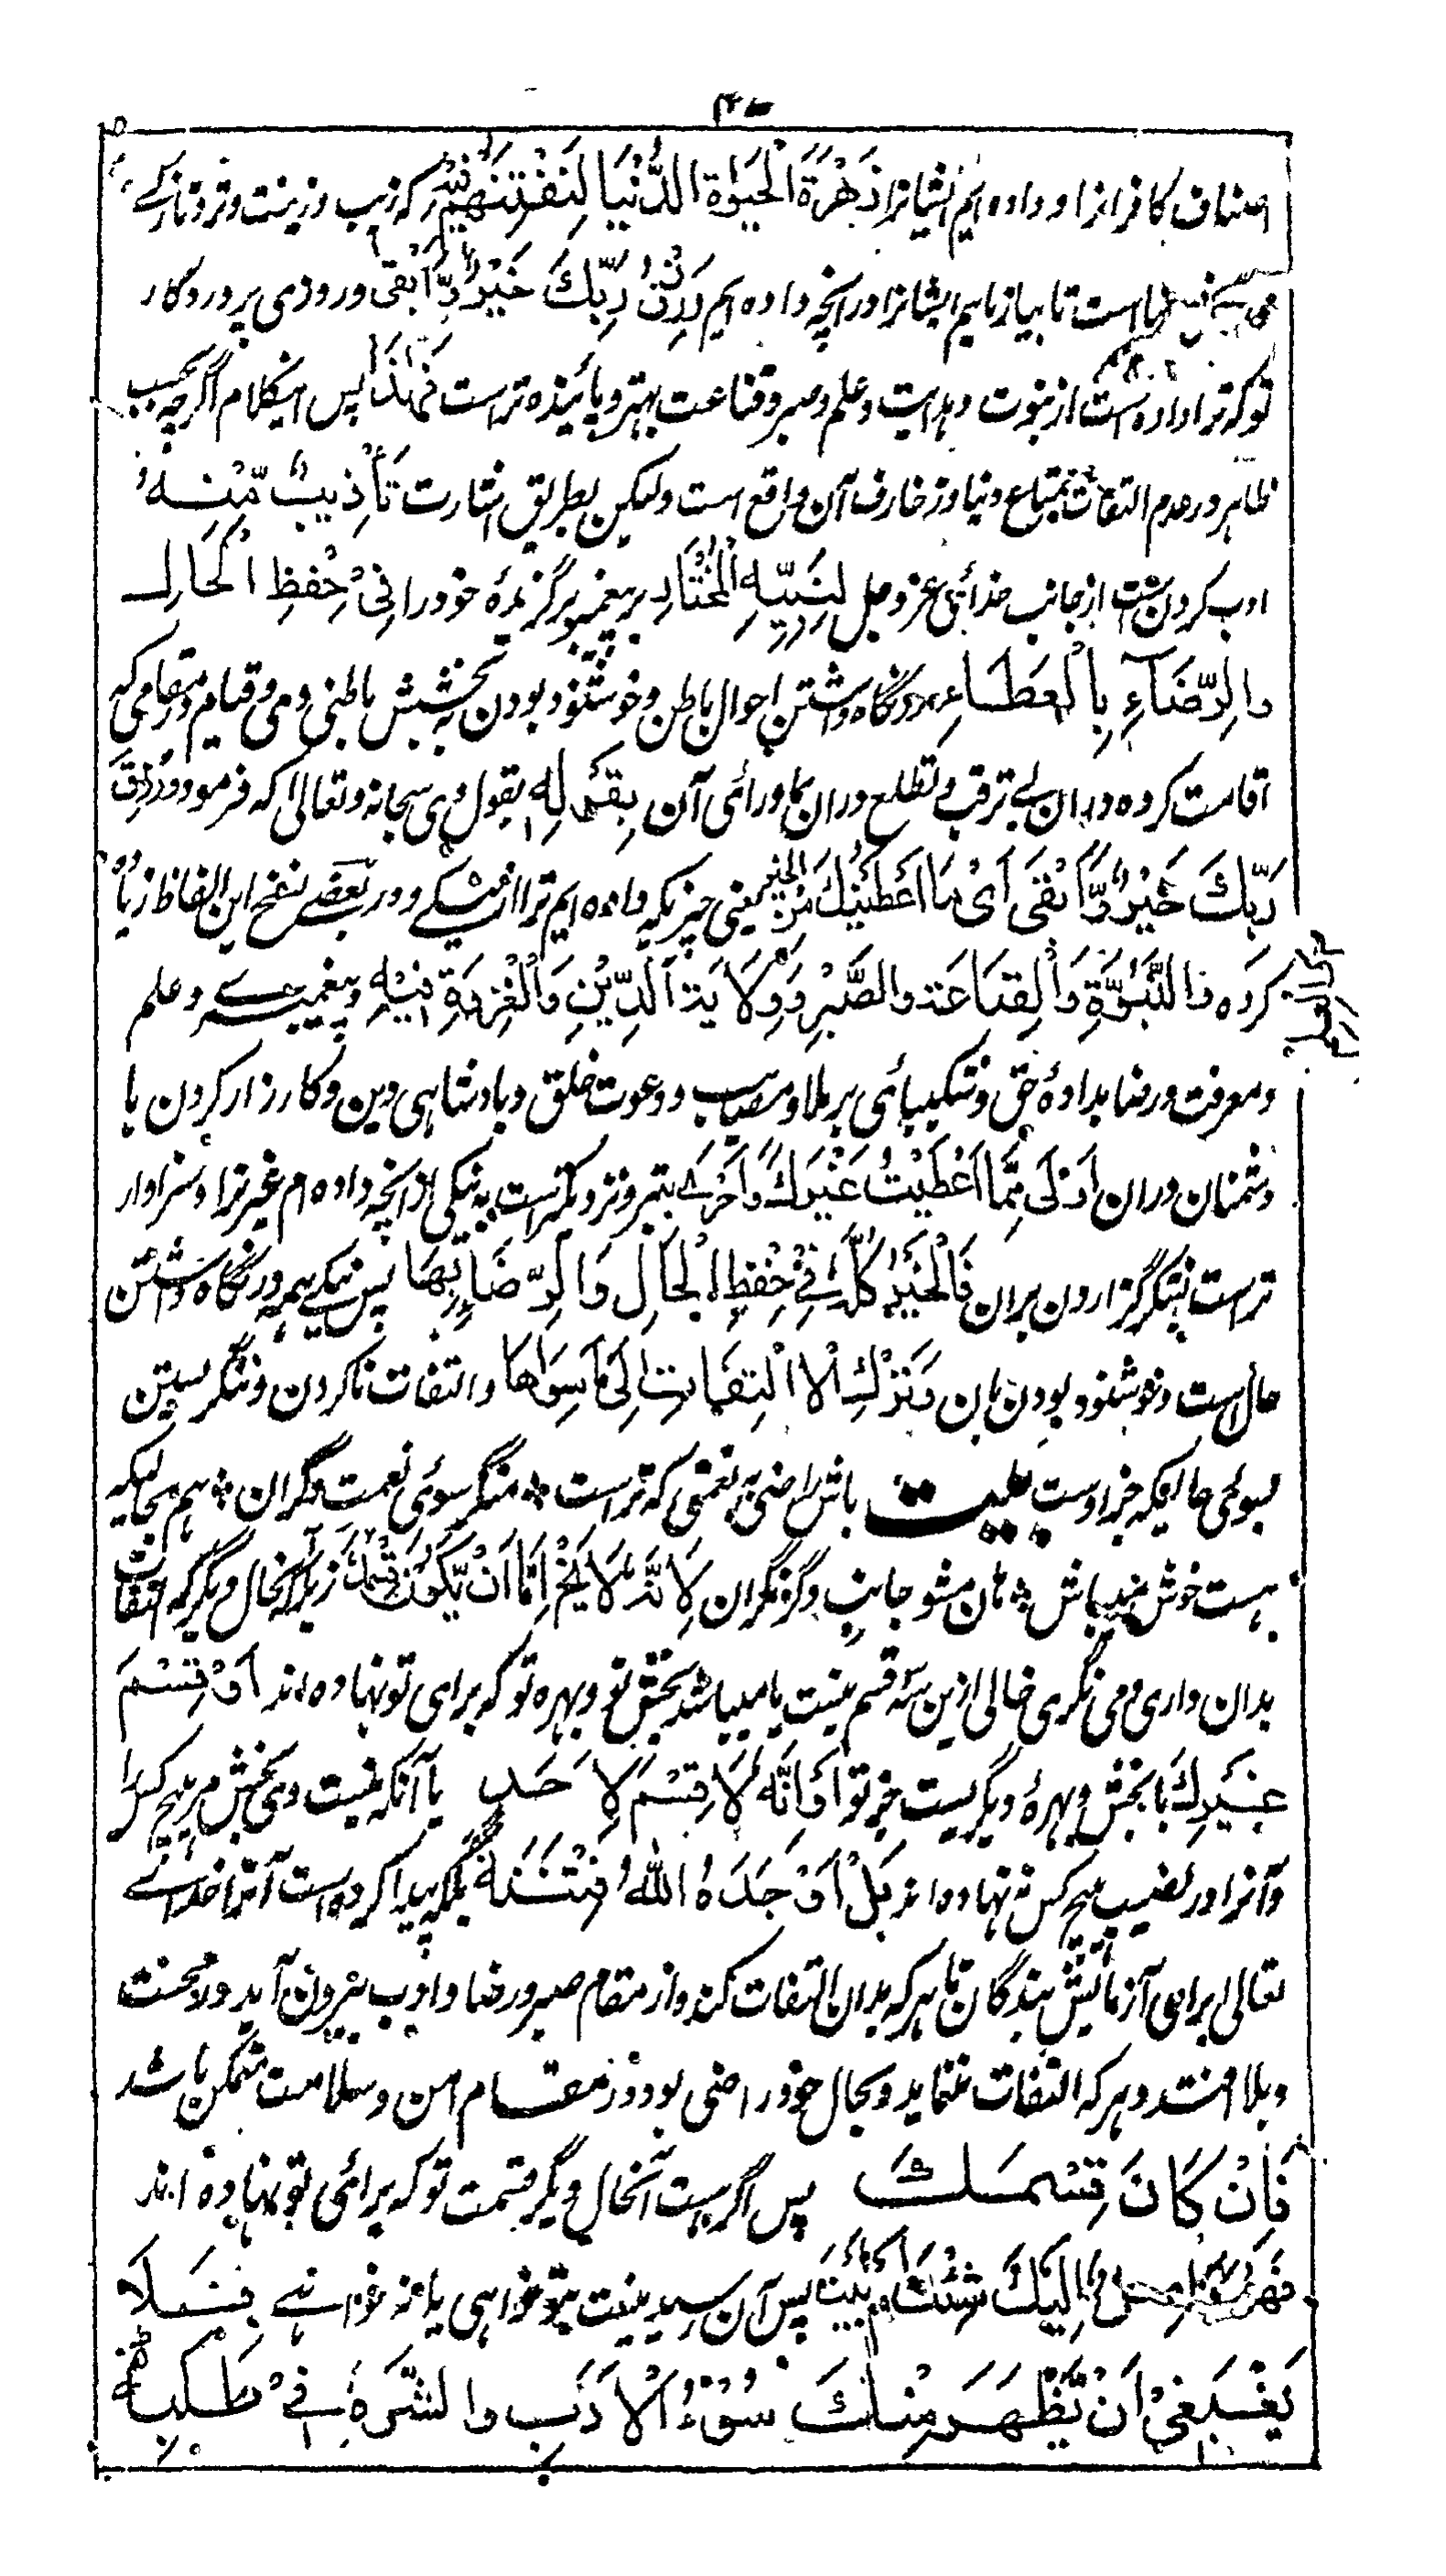 اصناف کافرانرا و داده ایم ایشانرا زَهْرَةَ الْحَيٰوةِ الدُّنْيَا لِنَفْتِنَهُمْ فِيْهِ که زیب و زینت و تر و تازگے
است تا بیازمایم ایشانرا در آنچه داده ایم وَرِزْقُ رَبِّكَ خَيْرٌ وَّاَبْقٰى و روزی پروردگار
تو که ترا داده است از نبوت و هدایت و علم و صبر و قناعت بهتر و پاینده تر است فَهٰذَا پس اینکلام اگرچه بحسب
ظاهر در عدم التفات بمتاع دنیا و زخارف آن واقع است ولیکن بطریق اشارت تَأْدِيْبٌ مِّنْهُ
ادب کردن ست از جانب خدائی عز و جل لِنَبِيِّهِ الْمُخْتَارِ پیغمبر برگزیدۀ خود را فِىْ حِفْظِ الْحَالِ
وَالرِّضَآءِ بِالْعَطَاءِ در نگاه داشتن احوال باطن و خوشنود بودن بخشش باطنی و می و قیام در مقامی که
اقامت کرده دران بے ترقب و تطلع دران بماورائی آن بِقَوْلِهِ بقول وی سبحانه و تعالی که فرمود وَرِزْقُ
رَبِّكَ خَيْرٌ وَّاَبْقٰى اَىْ مَا اَعْطَيْتُكَ مِنَ الْخَيْرِ یعنی چیزیکه داده ایم ترا از نیکے و در بعضے نسخ این الفاظ زیاده
کرده وَالنُّبُوَّةِ وَالْقِنَاعَةِ وَالصَّبْرِ وَوِلَايَةِ الدِّيْنِ وَالْغَزْوَةِ فِيْهِ و پیغمبرے و علم
و معرفت و رضا بدادۀ حق و شکیبائی بر بلا و مصایب و دعوت خلق و بادشاهی دین و کارزار کردن با
دشمنان دران اَوْلٰى مِمَّا اَعْطَيْتُ غَيْرَكَ وَاَحْرٰى بهتر و نزدیکتر است به نیکی از آنچه داده ام غیر ترا و سزاوار
تر است بشکر گزاردن بران فَالْخَيْرُ كُلُّهٗ فِىْ حِفْظِ الْحَالِ وَالرِّضَا بِهَا پس نیکے همه در نگاه داشتن
حال است و خوشنود بودن بان وَتَرْكِ الْاِلْتِفَاتِ اِلٰى مَا سِوَاهَا و التفات ناکردن و ننگریستن
بسوئی حالیکه جز اوست بیت باش راضی به نعمتی که تراست منگر سوئی نعمت دگران هم بحالیکه
هست خوش میباش هان مشو جانب دگر نگران لِاَنَّهٗ لَا يَخْلُوْ اِمَّا اَنْ يَّكُوْنَ قِسْمَكَ زیرا که آنحال دیگر که التفات
بدان داری و می نگری خالی ازین سه قسم نیست یا میباشد بخش تو و بهره تو که برای تو نهاده اند اَوْ قِسْمَ
غَيْرِكَ یا بخش و بهرۀ دیگریست جز تو اَوْ اَنَّهٗ لَا قِسْمَ لِاَحَدٍ یا آنکه نیست وی بخش مر هیچ کس را
و آنرا در نصیب هیچ کس نه نهاده اند بَلْ اَوْجَدَهُ اللّٰهُ فِتْنَةً بلکه پیدا کرده است آنرا خدائے
تعالی برای آزمایش بندگان تا هر که بدان التفات کند و از مقام صبر و رضا و ادب بیرون آید در محنت
و بلا افتد و هر که التفات ننماید و بحال خود راضی بود در مقام امن و سلامت متمکن باشد
فَاِنْ كَانَ قِسْمَكَ پس اگر هست آنحال دیگر قسمت تو که برائی تو نهاده اند
فَهُوَ وَاصِلٌ اِلَيْكَ شِئْتَ اَمْ اَبَيْتَ پس آن رسیدنیست بتو خواهی یا نه خواهے فَلَا
يَنْبَغِىْ اَنْ يَّظْهَرَ مِنْكَ سُوْءُ الْاَدَبِ وَالشَّرَهُ فِىْ طَلَبِهٖ